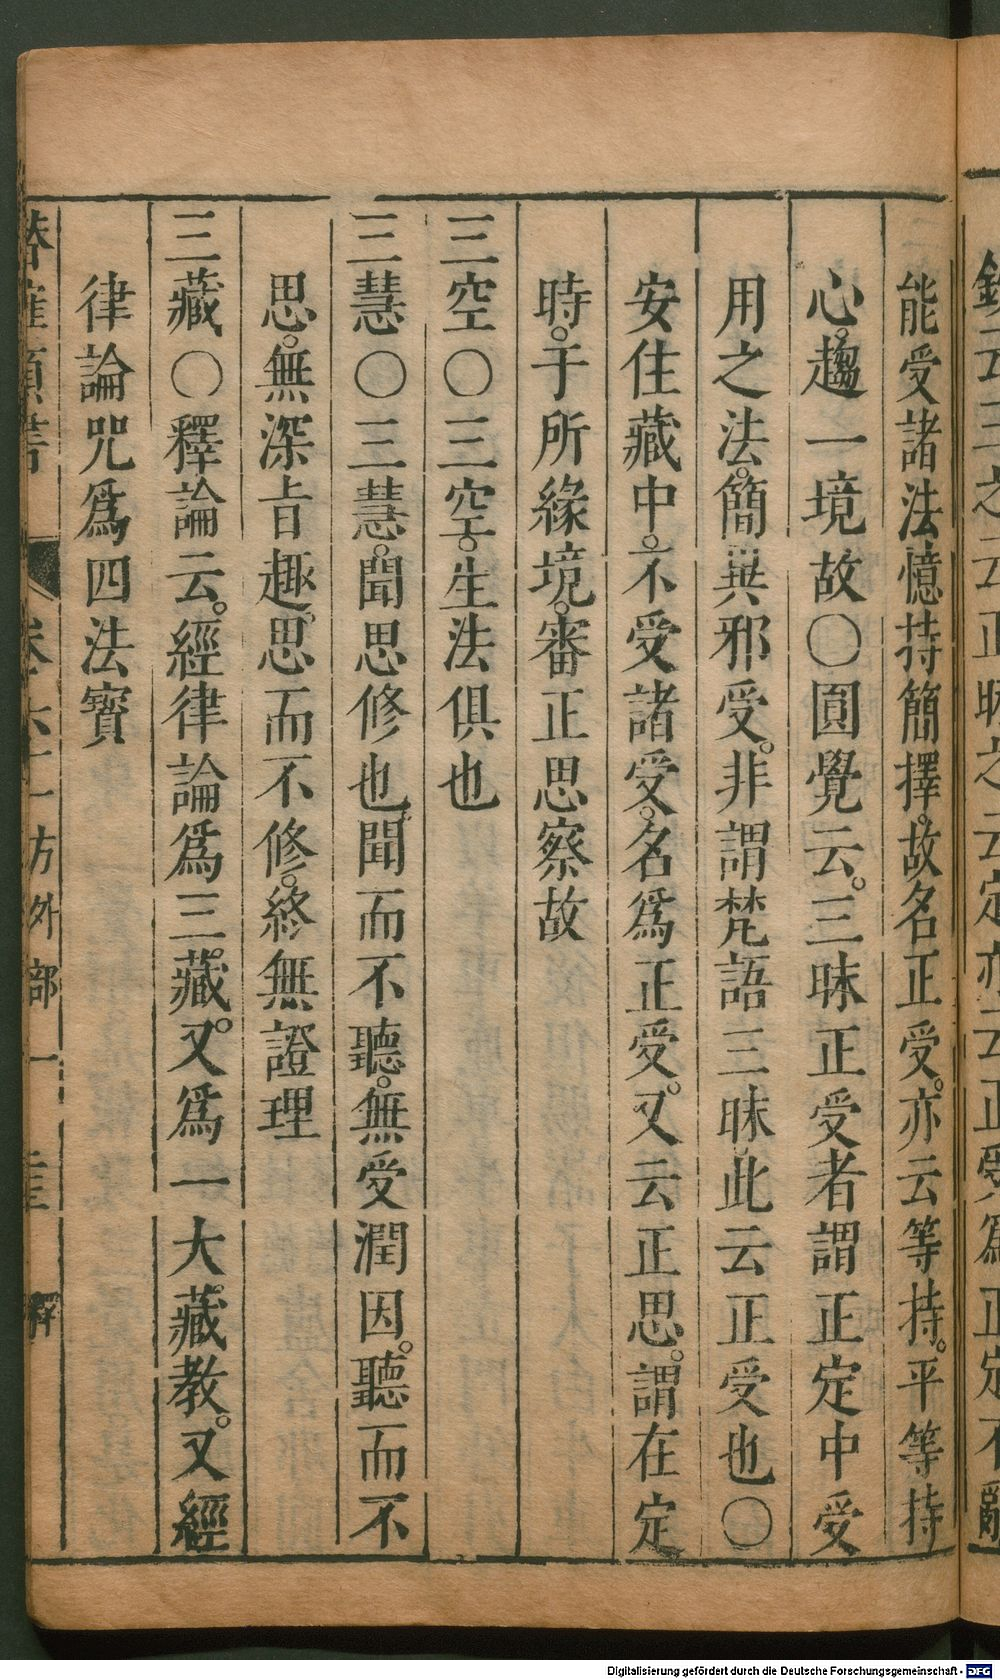 能受諸法憶持簡擇。故名正受。亦云等持。平等持
心。趨一境故〇圓覺云。三昧正受者謂正定中受
用之法。簡異邪受。非謂梵語三昧此云正受也〇
安住藏中。不受諸受。名爲正受。又云正思。謂在定
時。于所緣境。審正思察故
三空〇三空。生法俱也
三慧〇三慧。聞思修也。聞而不聽。無受潤因。聽而不
思。無深旨趣。思而不修。終無證理
三藏〇釋論云。經律論爲三藏。又爲一大藏教。又經
律論咒爲四法寶
方外部一
Digitalisierung gefördert durch die Deutsche Forschungsgemeinschaft - DFG